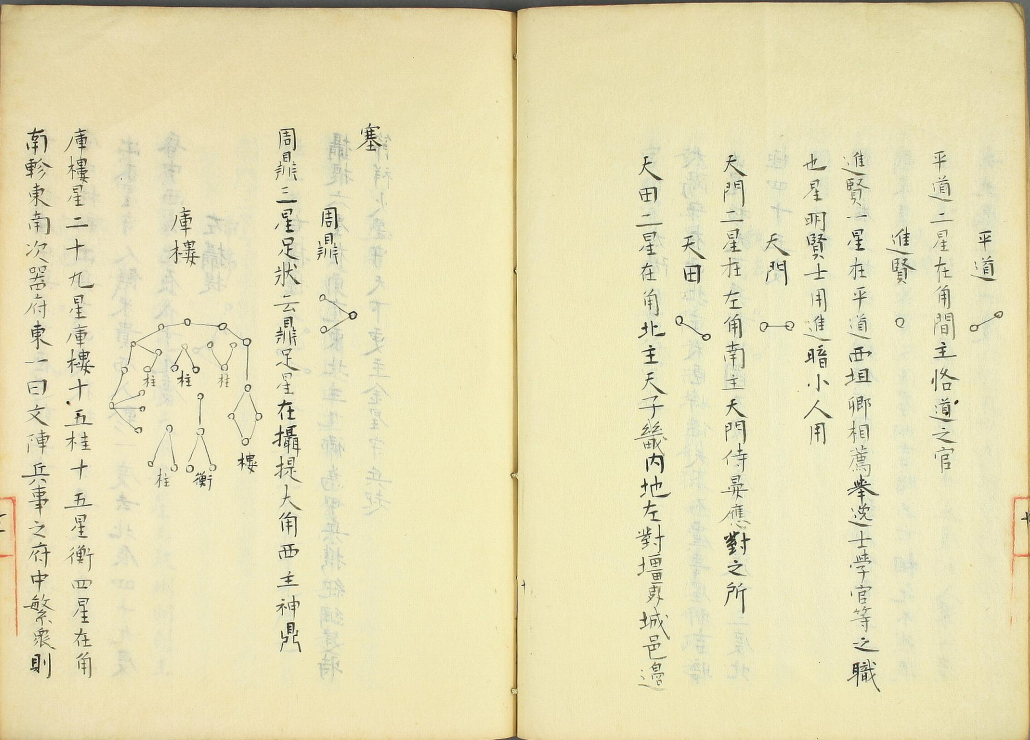 平道
平道二星在角間主恪道之官
進賢
進賢一星在平道西坦卿相薦擧逸士学官等之職
也星明賢士用進暗小人用
天門
天門二星在左角南主天門侍晏應對之所
天田
天田二星在角北主天子畿内地左對壃東城邑邊
塞
周鼎
周鼎三星足狀云鼎足星在攝提大角西主神鼎
庫樓
柱
柱
柱
樓
柱
衡
庫樓星二十九星庫樓十五柱十五星衡四星在角
南軫東南次器府東一曰文陣兵事之府中繁衆則